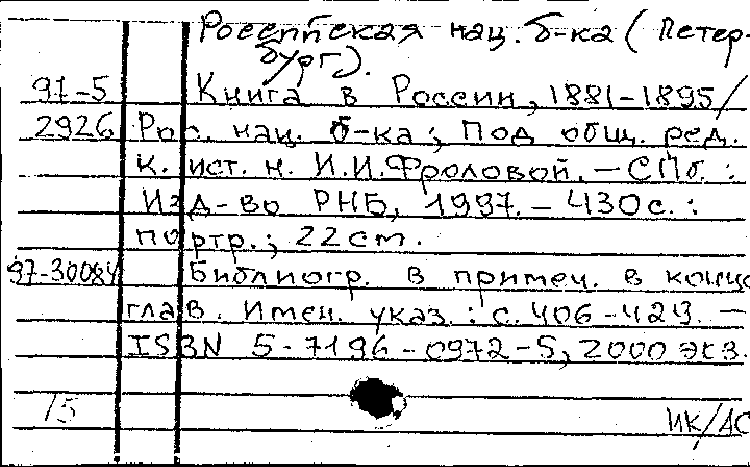 Российская нац. б-ка (Петер-
бург).
97-5 Книга в России, 1881-1895/
2926 Рос. нац. б-ка; Под общ. ред.
к. ист. н. И.И.Фроловой. - СПб. :
Изд-во РНБ, 1997. - 430с. :
портр.; 22см.
97-30084 Библиогр. в примеч. в конце
глав. Имен. указ.: с. 406-429. -
ISBN 5-7196-0972-5, 2000 экз.
15 ИК/АС